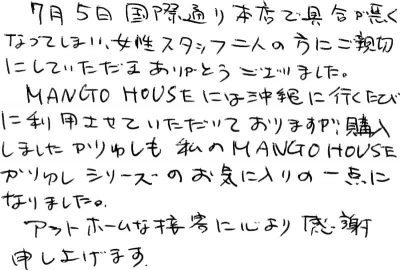 7月5日国際通り本店で具合が悪く
なってしまい、女性スタッフ二人の方にご親切
にしていただきありがとうございました。
MANGO HOUSEには沖縄に行くたび
に利用させていただいておりますが、購入
しましたかりゆしも私のMANGO HOUSE
かりゆしシリーズのお気に入りの一点に
なりました。
アットホームな接客に心より感謝
申し上げます。